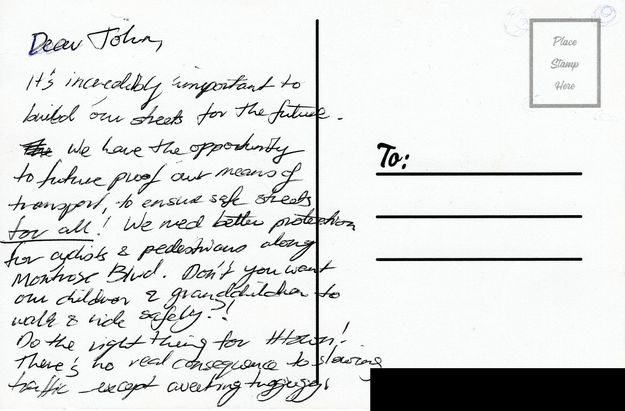 Dear John,
It's incredibly important to
build our streets for the future.
We have the opportunity
to future proof our means of
transport, to ensure safe streets
for all! We need better protection
for cyclists & pedestrians along
Montrose Blvd. Don't you want
our children & grandchildren to
walk & ride safely?!
Do the right thing for Htown!
There's no real consequence to slowing
traffic except averting tragedies!
Place
Stamp
Here
To: